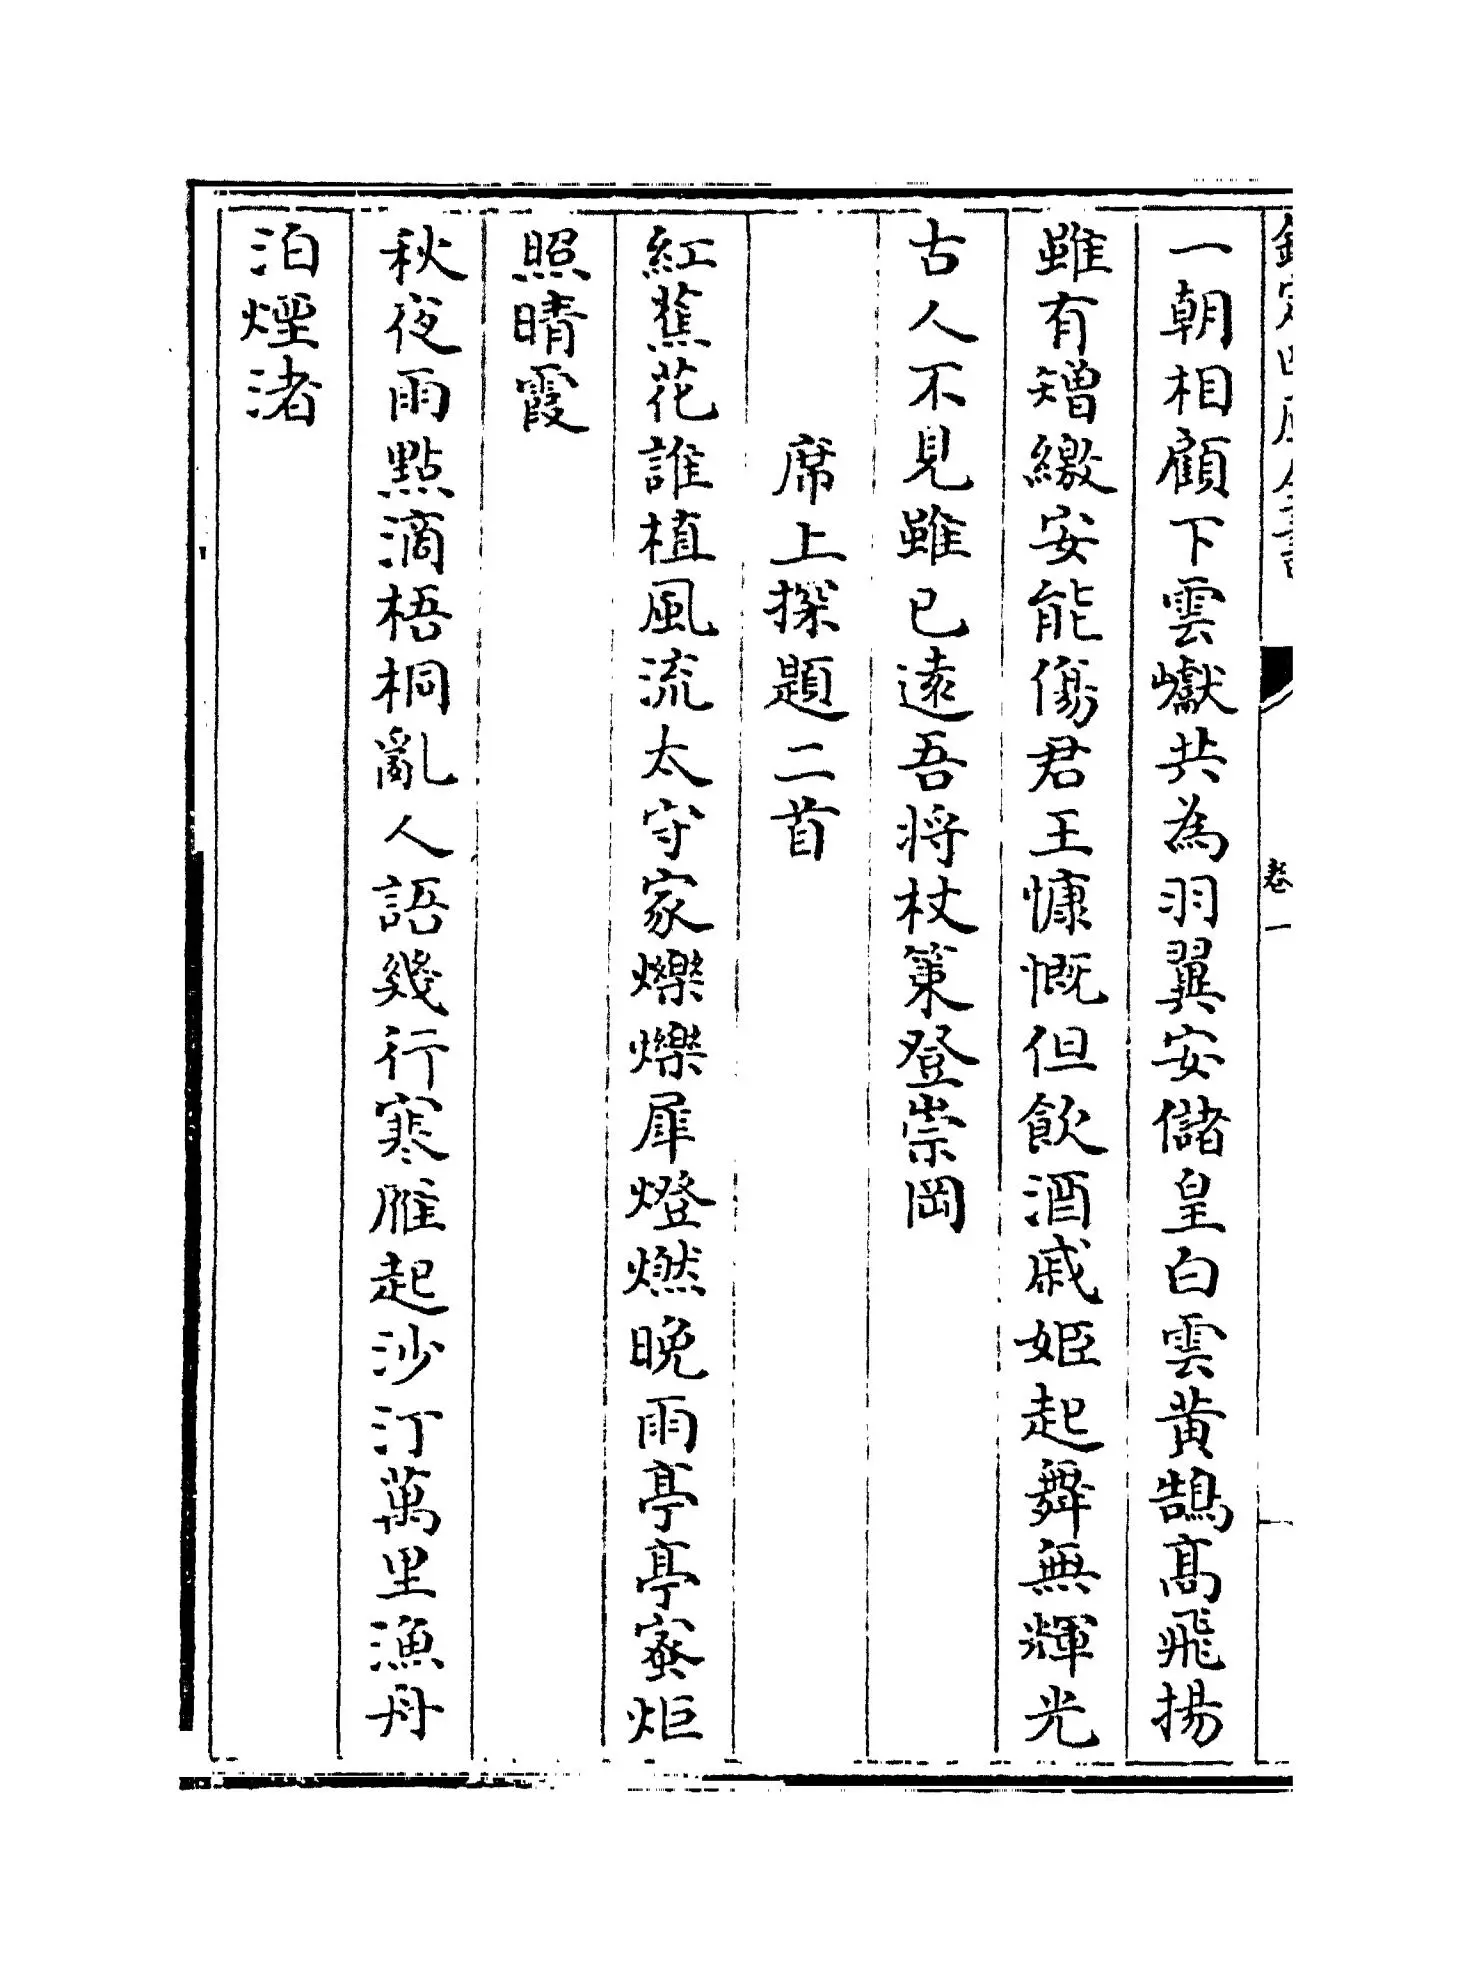 欽定四庫全書
卷一
一朝相顧下雲巘共為羽翼安儲皇白雲黄鵠髙飛揚
雖有矰繳安能傷君王慷慨但飲酒戚姬起舞無輝光
古人不見雖已逺吾將杖䇿登崇岡
席上探題二首
紅蕉花誰植風流太守家爍爍犀燈燃晚雨亭亭蜜炬
照晴霞
秋夜雨點滴梧桐亂人語幾行寒雁起沙汀萬里漁舟
泊煙渚